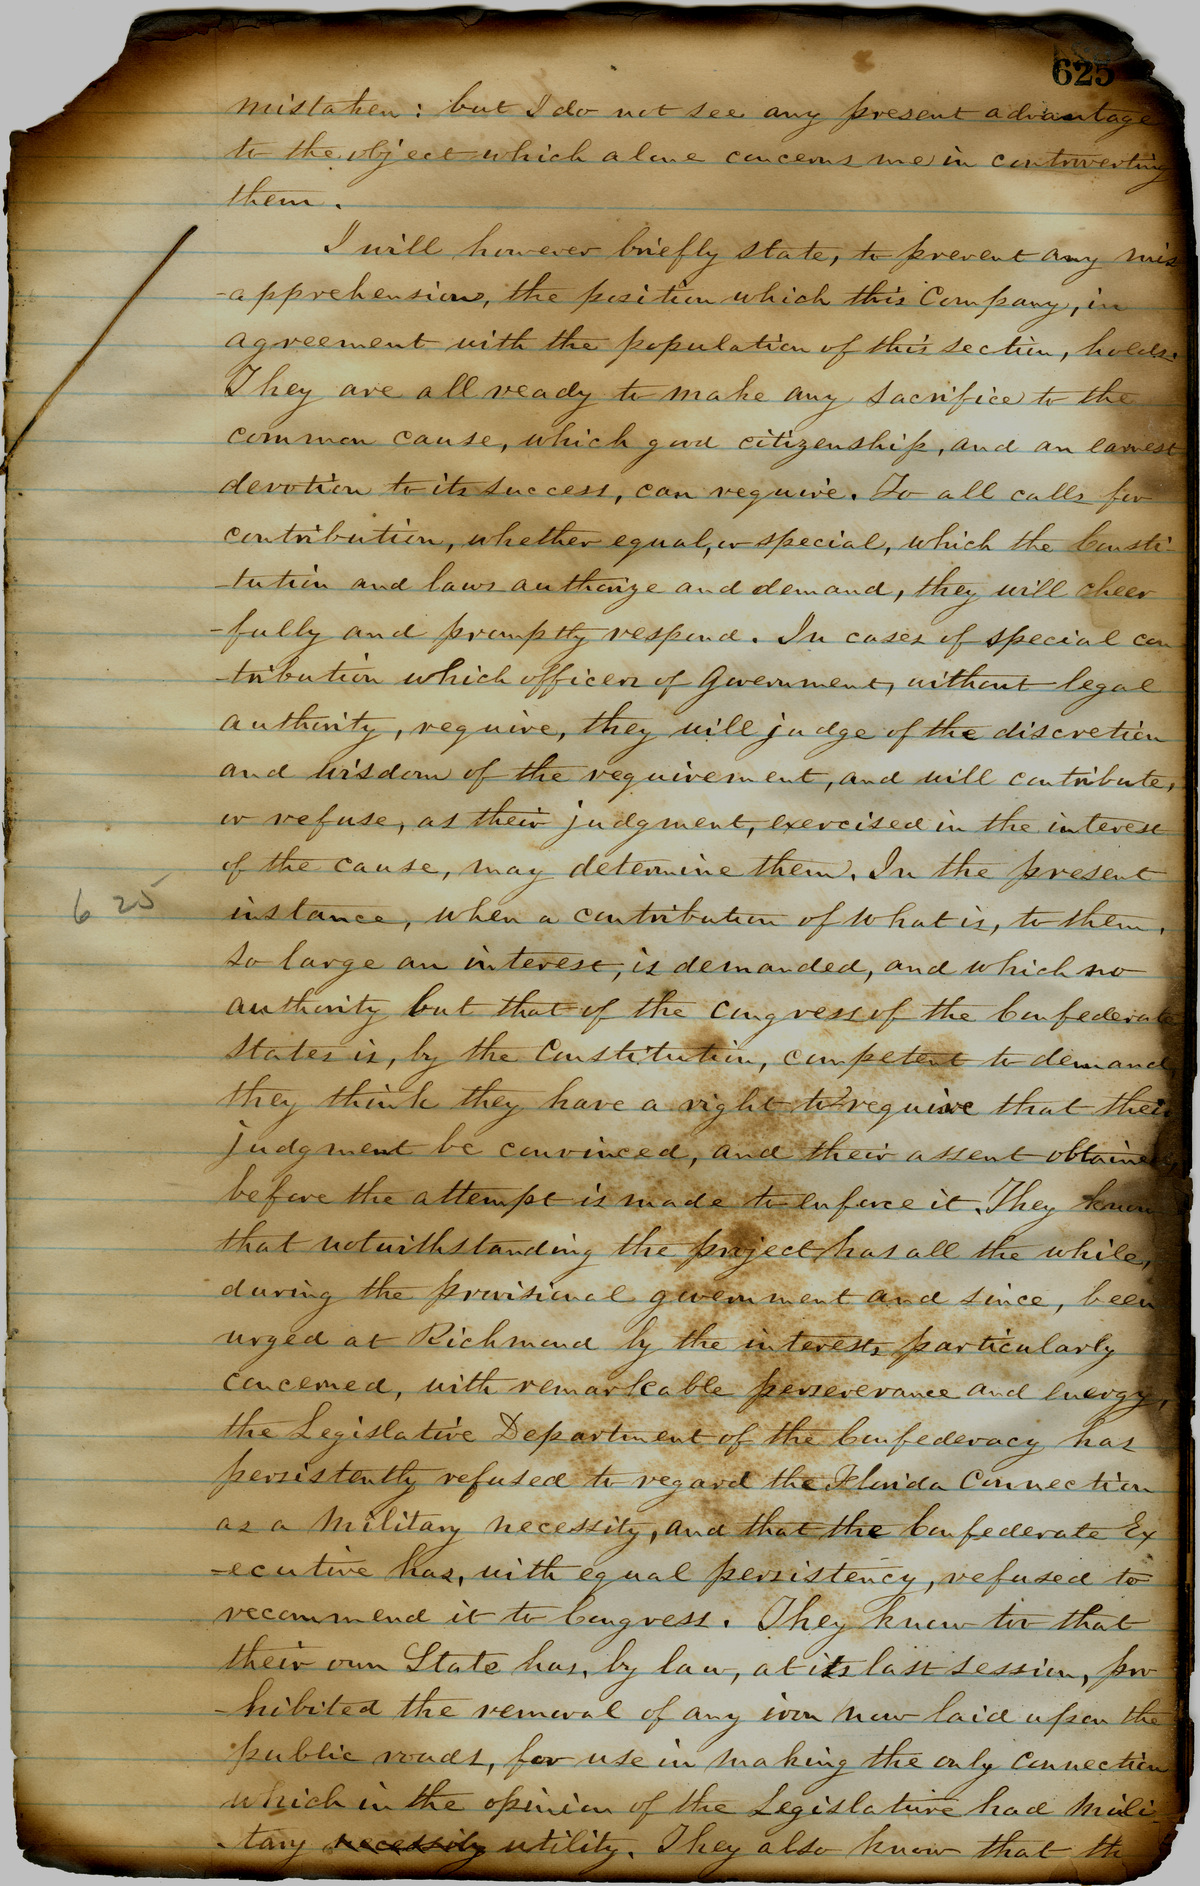 625
mistaken: but I do not see any present advantage
to the object which alone concerns me in controverting
them.
I will however briefly state, to prevent any mis
-apprehension, the position which this Company, in
agreement with the population of this section, holds.
They are all ready to make any sacrifice to the
common cause, which good citizenship, and an earnest
devotion to its success, can require. To all calls for
contribution, whether equal, or special, which the Consti-
-tution and laws authorize and demand, they will cheer
-fully and promptly respond. In cases of special con
-tribution which officers of Government, without legal
authority, require, they will judge of the discretion
and wisdom of the requirement, and will contribute,
or refuse, as their judgment, exercised in the interest
of the cause, may determine them. In the present
625
instance, when a contribution of what is, to them,
so large an interest, is demanded, and which no
authority but that of the Congress of the Confederate
States is, by the Constitution, competent to demand,
they think they have a right to require that their
judgment be convinced, and their assent obtained,
before the attempt is made to enforce it. They know
that notwithstanding the project has all the while,
during the provisional government and since, been
urged at Richmond by the interests particularly
concerned, with remarkable perseverance and energy,
the Legislative Department of the Confederacy has
persistently refused to regard the Florida Connection
as a military necessity, and that the Confederate Ex
-ecutive has, with equal persistency, refused to
recommend it to Congress. They know too that
their own State has, by law, at its last session, pro
-hibited the removal of any iron now laid upon the
public roads, for use in making the only connection
which in the opinion of the Legislature had mili-
-tary necessity utility. They also know that th